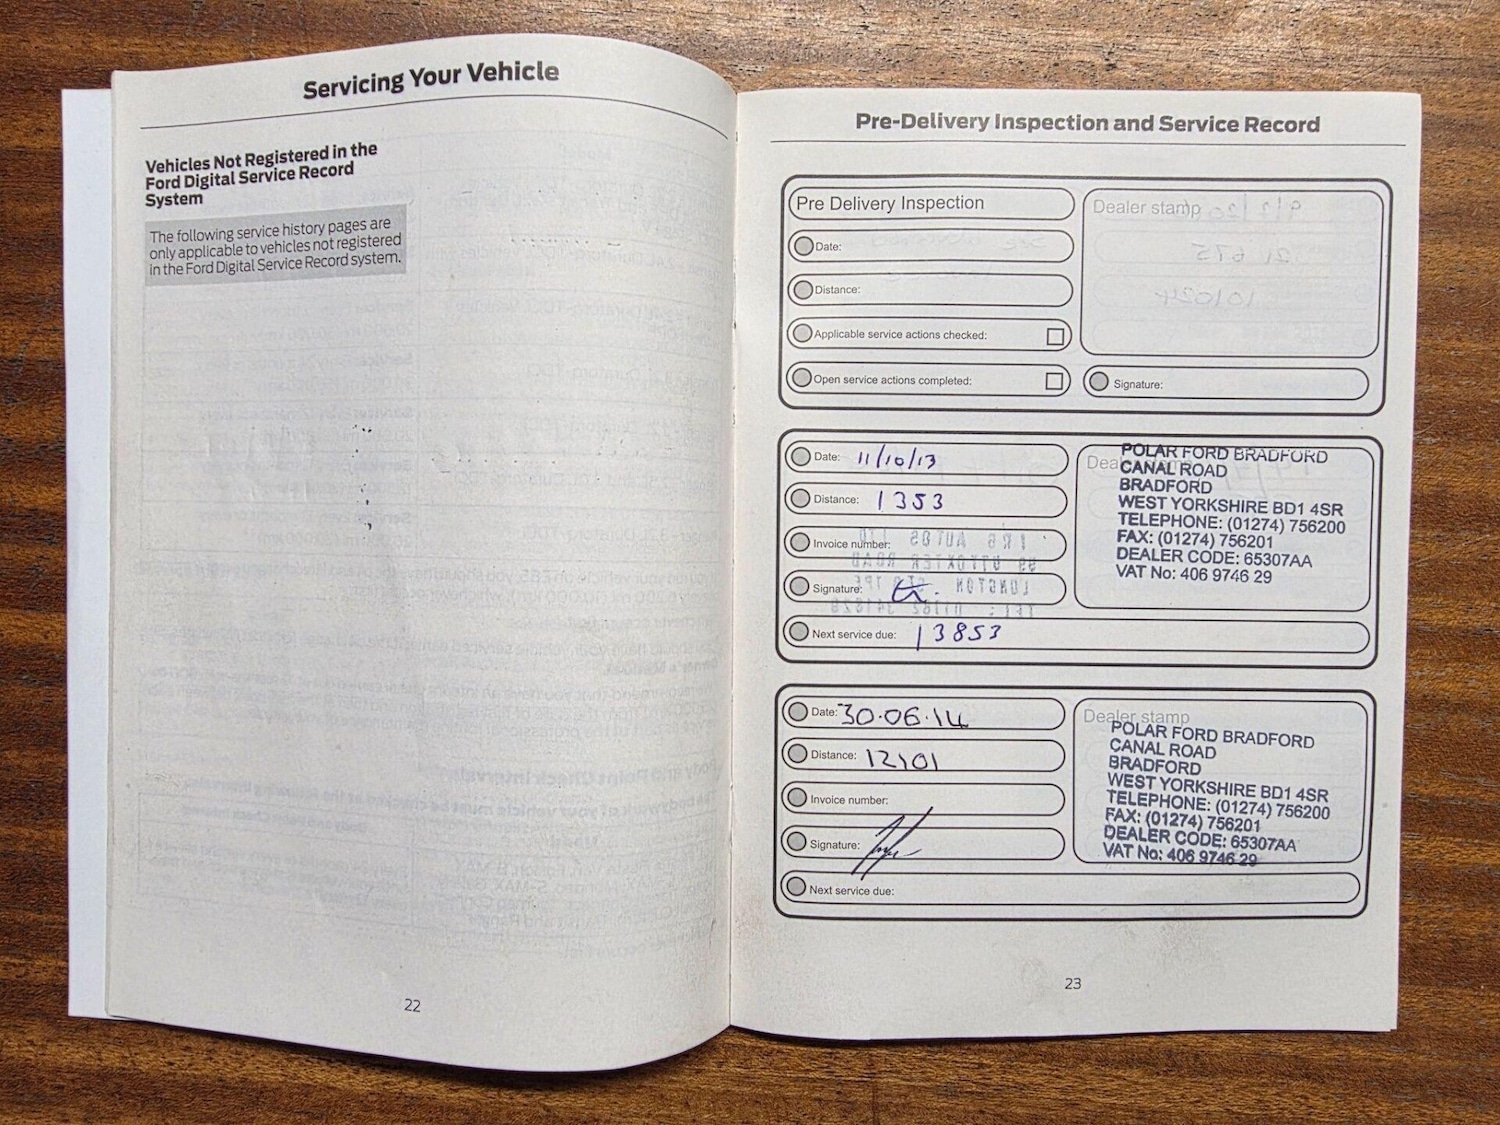 Servicing Your Vehicle
Vehicles Not Registered in the
Ford Digital Service Record
System
The following service history pages are
only applicable to vehicles not registered
in the Ford Digital Service Record system.
22
Pre-Delivery Inspection and Service Record
Pre Delivery Inspection
Date:
Distance:
Applicable service actions checked:
Open service actions completed:
Dealer stamp
Signature:
Date: 11/10/13
Distance: 1353
Invoice number:
Signature:
Next service due: 13853
Dealer stamp
POLAR FORD BRADFORD
CANAL ROAD
BRADFORD
WEST YORKSHIRE BD1 4SR
TELEPHONE: (01274) 756200
FAX: (01274) 756201
DEALER CODE: 65307AA
VAT No: 406 9746 29
Date: 30.06.14
Distance: 12101
Invoice number:
Signature:
Next service due:
Dealer stamp
POLAR FORD BRADFORD
CANAL ROAD
BRADFORD
WEST YORKSHIRE BD1 4SR
TELEPHONE: (01274) 756200
FAX: (01274) 756201
DEALER CODE: 65307AA
VAT No: 406 9746 29
23